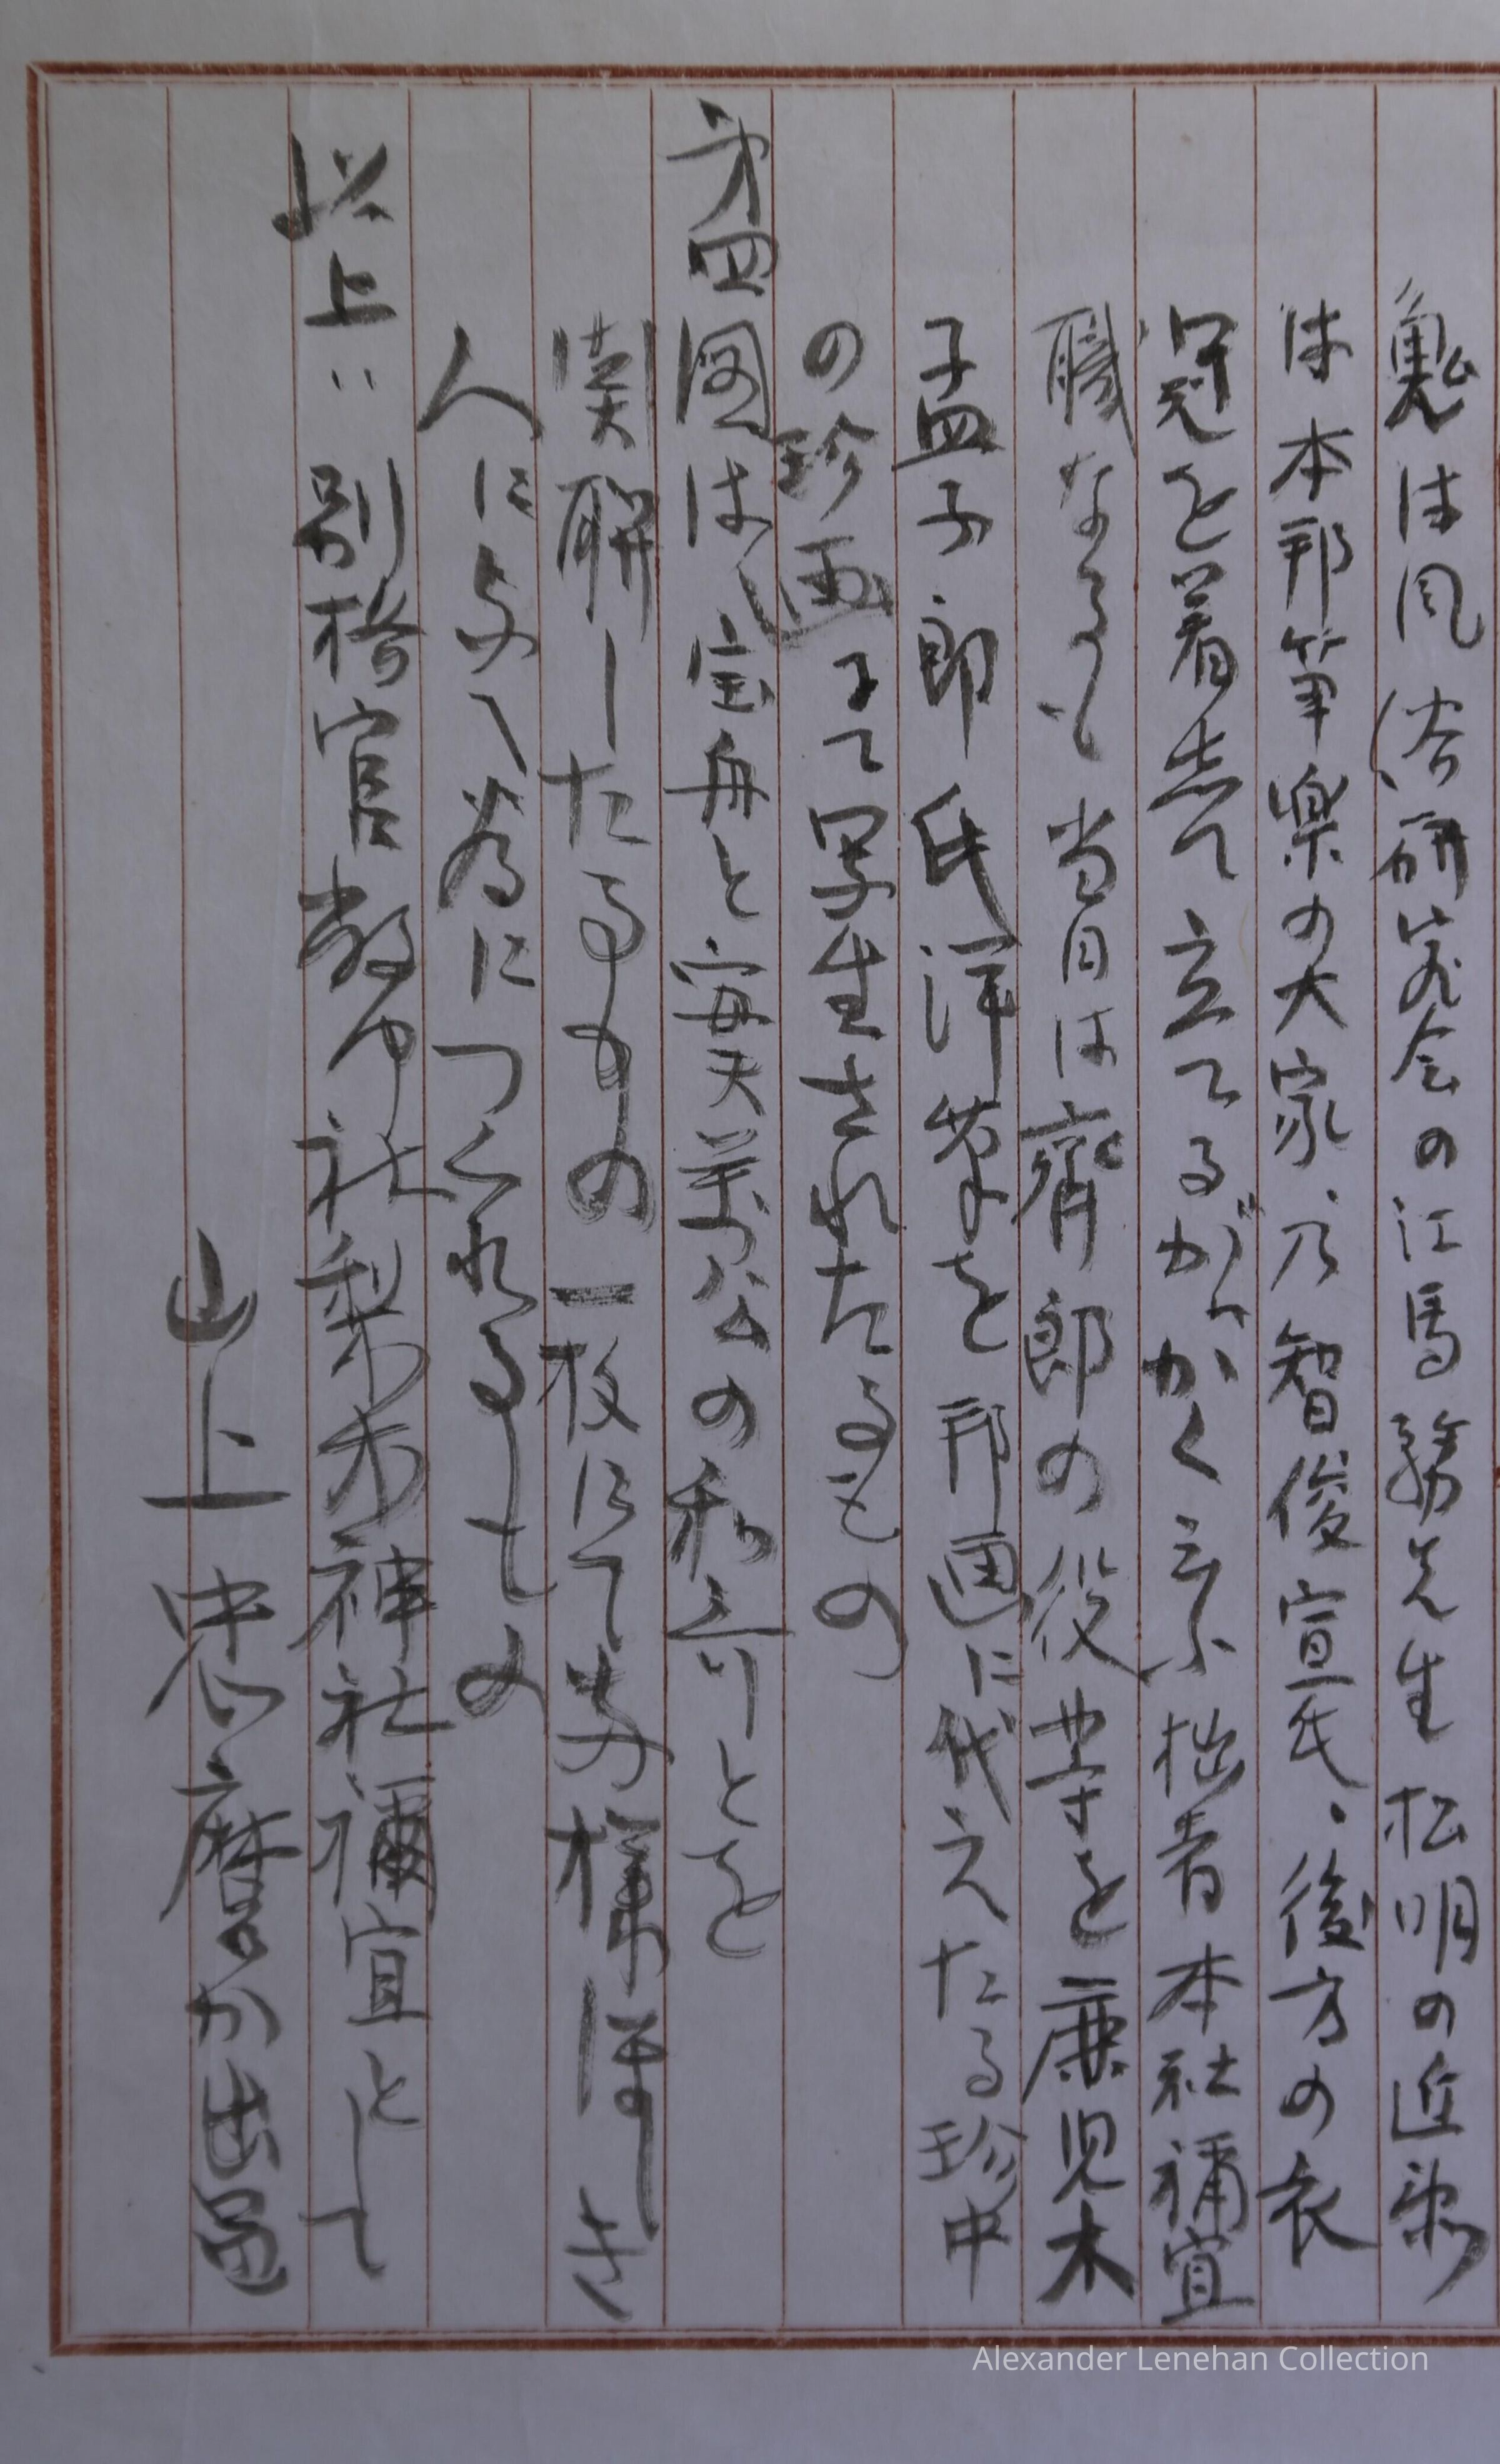 魁は風俗研究会の江馬務先生 松明の近衛
は本邦筝楽の大家、乃智俊宣氏、後方の衣
冠を着きて立てるが、かく云ふ拙者本社禰宜
職なるも当日は齋郎の役等を 鹿児木
孟子郎氏洋筆を邦画に代えたる珍中
の珍画にて写生されたるもの
第四図は、宝舟と安天萬公の和歌とを
関聯したるもの一枚にて如 様ほしき
人に与へ為につくれるもの
以上ハ別格官幣中社梨木神社禰宜として
山上忠麿か出
Alexander Lenehan Collection